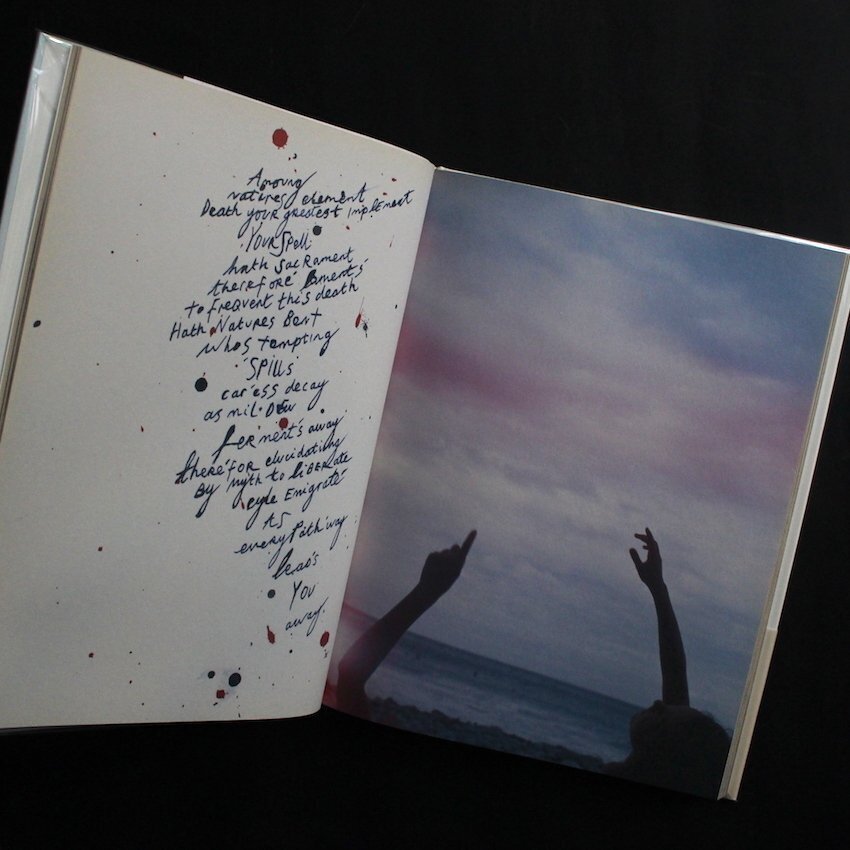 Among
natures element
Death your greatest implement
Your Spell
hath Sacrament
therefore laments
to frequent this death
Hath Natures Bent
whos tempting
SPILLS
caress decay
as mil.Dew
ferment's away
there'for elucidating
By myth to LIBERate
Emigraté
AS
every Pathway
leads
You
away.